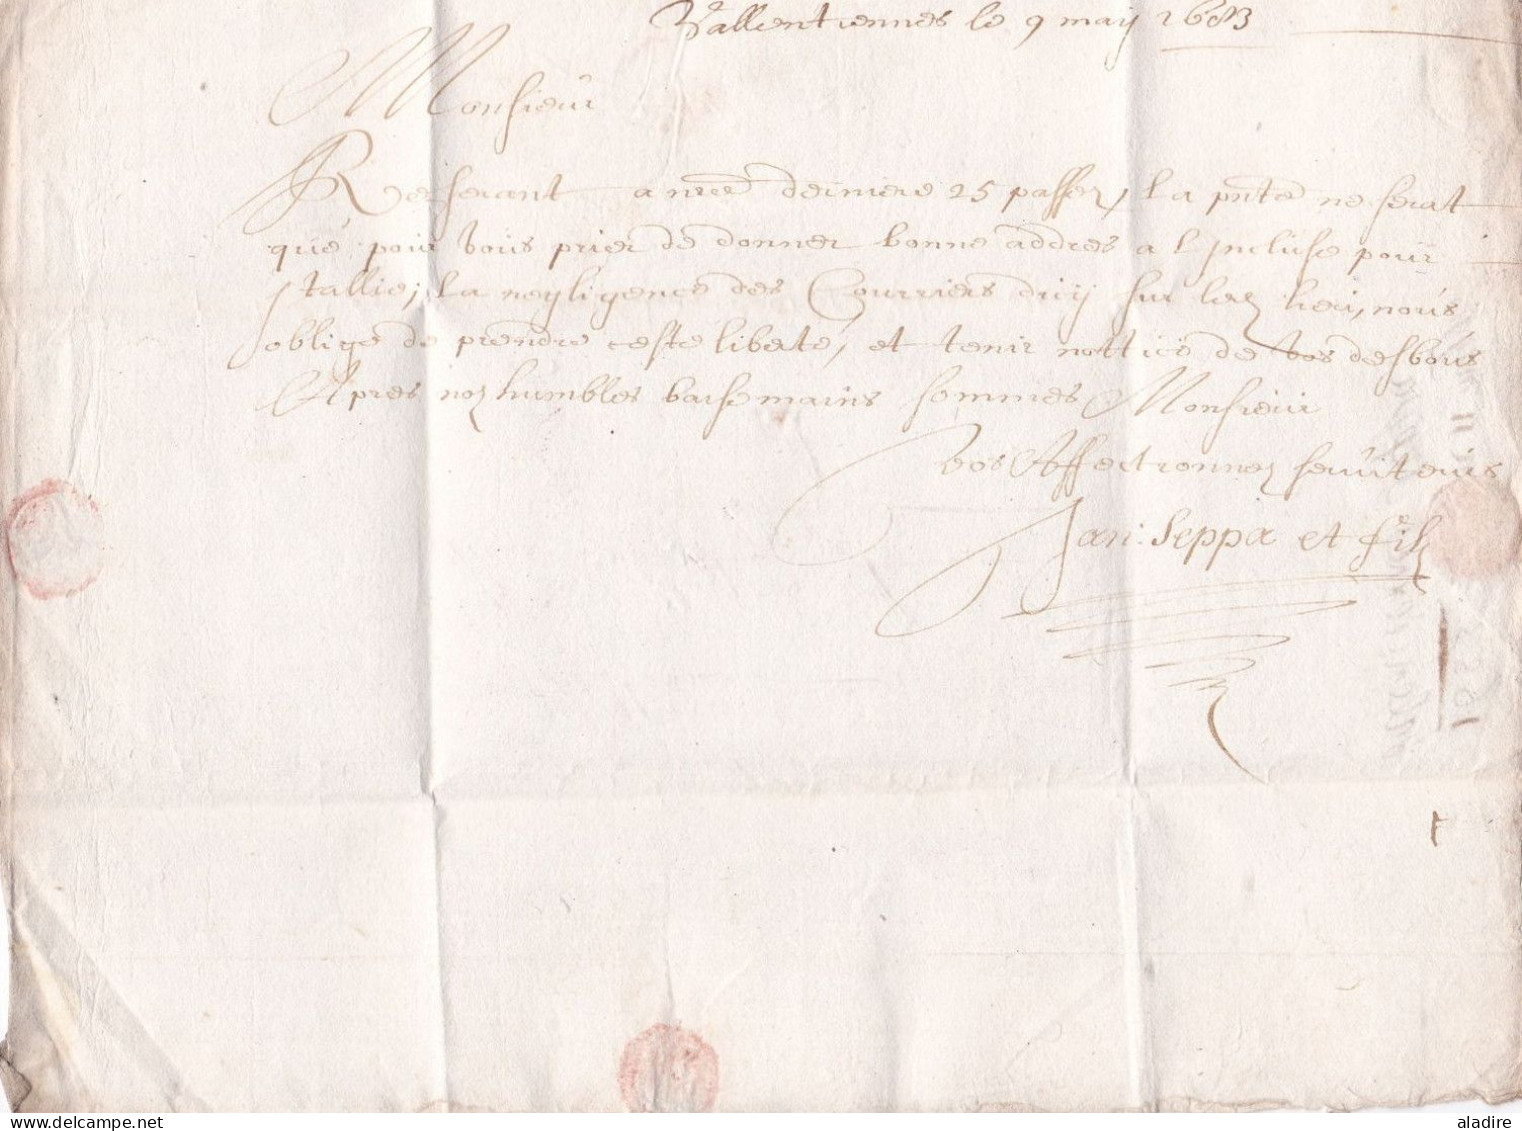 Vallentiennes le 9 maij 1683
Monsieur
Refferant a nre derniere 25 passez, la pnte ne serat
que pour vous prier de donner bonne addres a l'Incluse pour
Itallie; la negligence des Courriers d'icij sur lez lieu, nous
oblige de prendre ceste liberté, et tenir nottice de vos desbours
Apres noz humbles baisemains sommes Monsieur
vos Affectionnez serviteurs
Jan: Seppa et filz
aladire